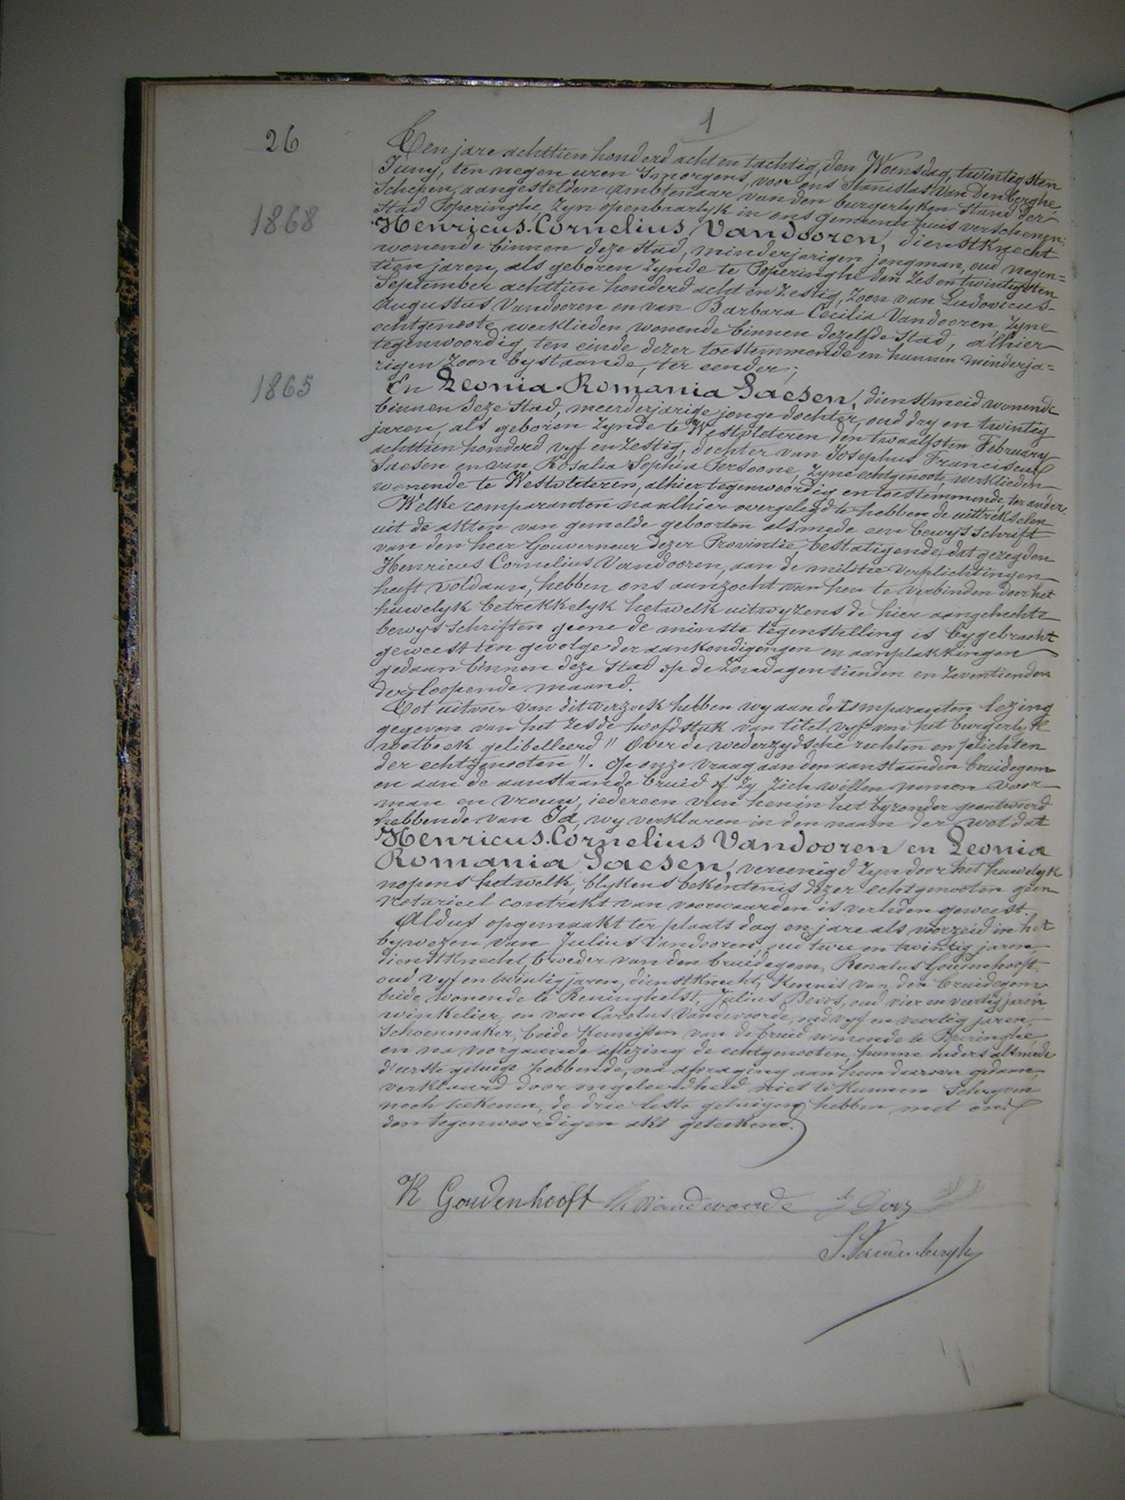 1
26
Een jare achttien honderd acht en tachtig, den Woensdag, twintigsten
Juny, ten negen uren 's morgens, voor ons Stanislas Van den berghe
Schepen, aangestelden ambtenaar van den burgerlyken Stand der
Stad Poperinghe, zyn openbaarlyk in ons gemeente huis verschenen;
1868
Henricus-Cornelius Vandooren, dienstknecht
wonende binnen deze Stad, minderjarigen jongman, oud negen=
tien jaren, als geboren zynde te Poperinghe den zes en twintigsten
September achttien honderd acht en zestig, zoon van Ludovicus-
Augustus Vandooren en van Barbara Cecilia Vandooren, zyne
echtgenoote, werklieden wonende binnen dezelfde Stad, alhier
tegenwoordig, ten einde dezer toestemmende en hunnen minderja=
rigen zoon bystaande, ter eender;
1865
En Leonia-Romania Saesen, dienstmeid wonende
binnen deze Stad, meerderjarige jonge dochter, oud dry en twintig
jaren, als geboren zynde te Westvleteren den twaalfsten February
achttien honderd vyf en zestig, dochter van Josephus Franciscus
Saesen en van Rosalia Sophia Persoone, zyne echtgenoote, werklieden
wonende te Westvleteren, alhier tegenwoordig en toestemmende, ter andere.
Welke comparanten na alhier overgelegd te hebben de uittrekselen
uit de akten van gemelde geboorten alsmede een bewysschrift
van den heer Gouverneur dezer Provintie, bestatigende dat gezegden
Henricus Cornelius Vandooren, aan de militie verplichtingen
heeft voldaan, hebben ons aanzocht van hen te verbinden door het
huwelyk betrekkelyk hetwelk uitwyzens de hier aangehechte
bewysschriften geene de minste tegenstelling is bygebracht
geweest ten gevolge der aankondigingen en aanplakkingen
gedaan binnen deze Stad op de Zondagen tienden en zeventienden
der loopende maand.
Tot uitvoer van dit verzoek hebben wy aan de Comparanten lezing
gegeven van het zesde hoofdstuk van titel vyf van het burgerlyk
wetboek gelibelleerd " Over de wederzydsche rechten en plichten
der echtgenooten ". Op onze vraag aan den aanstaanden bruidegom
en aan de aanstaande bruid of zy zich willen nemen voor
man en vrouw, iedereen van hen in het byzonder geantwoord
hebbende van Ja, wy verklaren in den naam der wet dat
Henricus-Cornelius Vandooren en Leonia
Romania Saesen, vereenigd zyn door het huwelyk
nopens hetwelk, blykens bekentenis dezer echtgenooten geen
notarieel contrakt van voorwaarden is verleden geweest.
Aldus opgemaakt ter plaats dag en jare als voorzeid in het
bywezen van Julius Vandooren, oud twee en twintig jaren,
dienstknecht, broeder van den bruidegom, Renatus Goudenhooft,
oud vyf en twintig jaren, dienstknecht, kennis van den bruidegom
beide wonende te Reninghelst, Julius Devos, oud vier en veertig jaren,
winkelier, en van Carolus Vandevoorde, oud vyf en veertig jaren,
Schoenmaker, beide kennissen van de bruid wonende te Poperinghe
en na voorgaende aflezing de echtgenooten, hunne ouders alsmede
d'eerste getuige hebbende, na afvraging aan hen daarover gedaan,
verklaard door ongeleerdheid niet te kunnen schryven
noch teekenen, de drie leste getuigen hebben met ons
den tegenwoordigen akt geteekend.
R Goudenhooft Vandevoorde